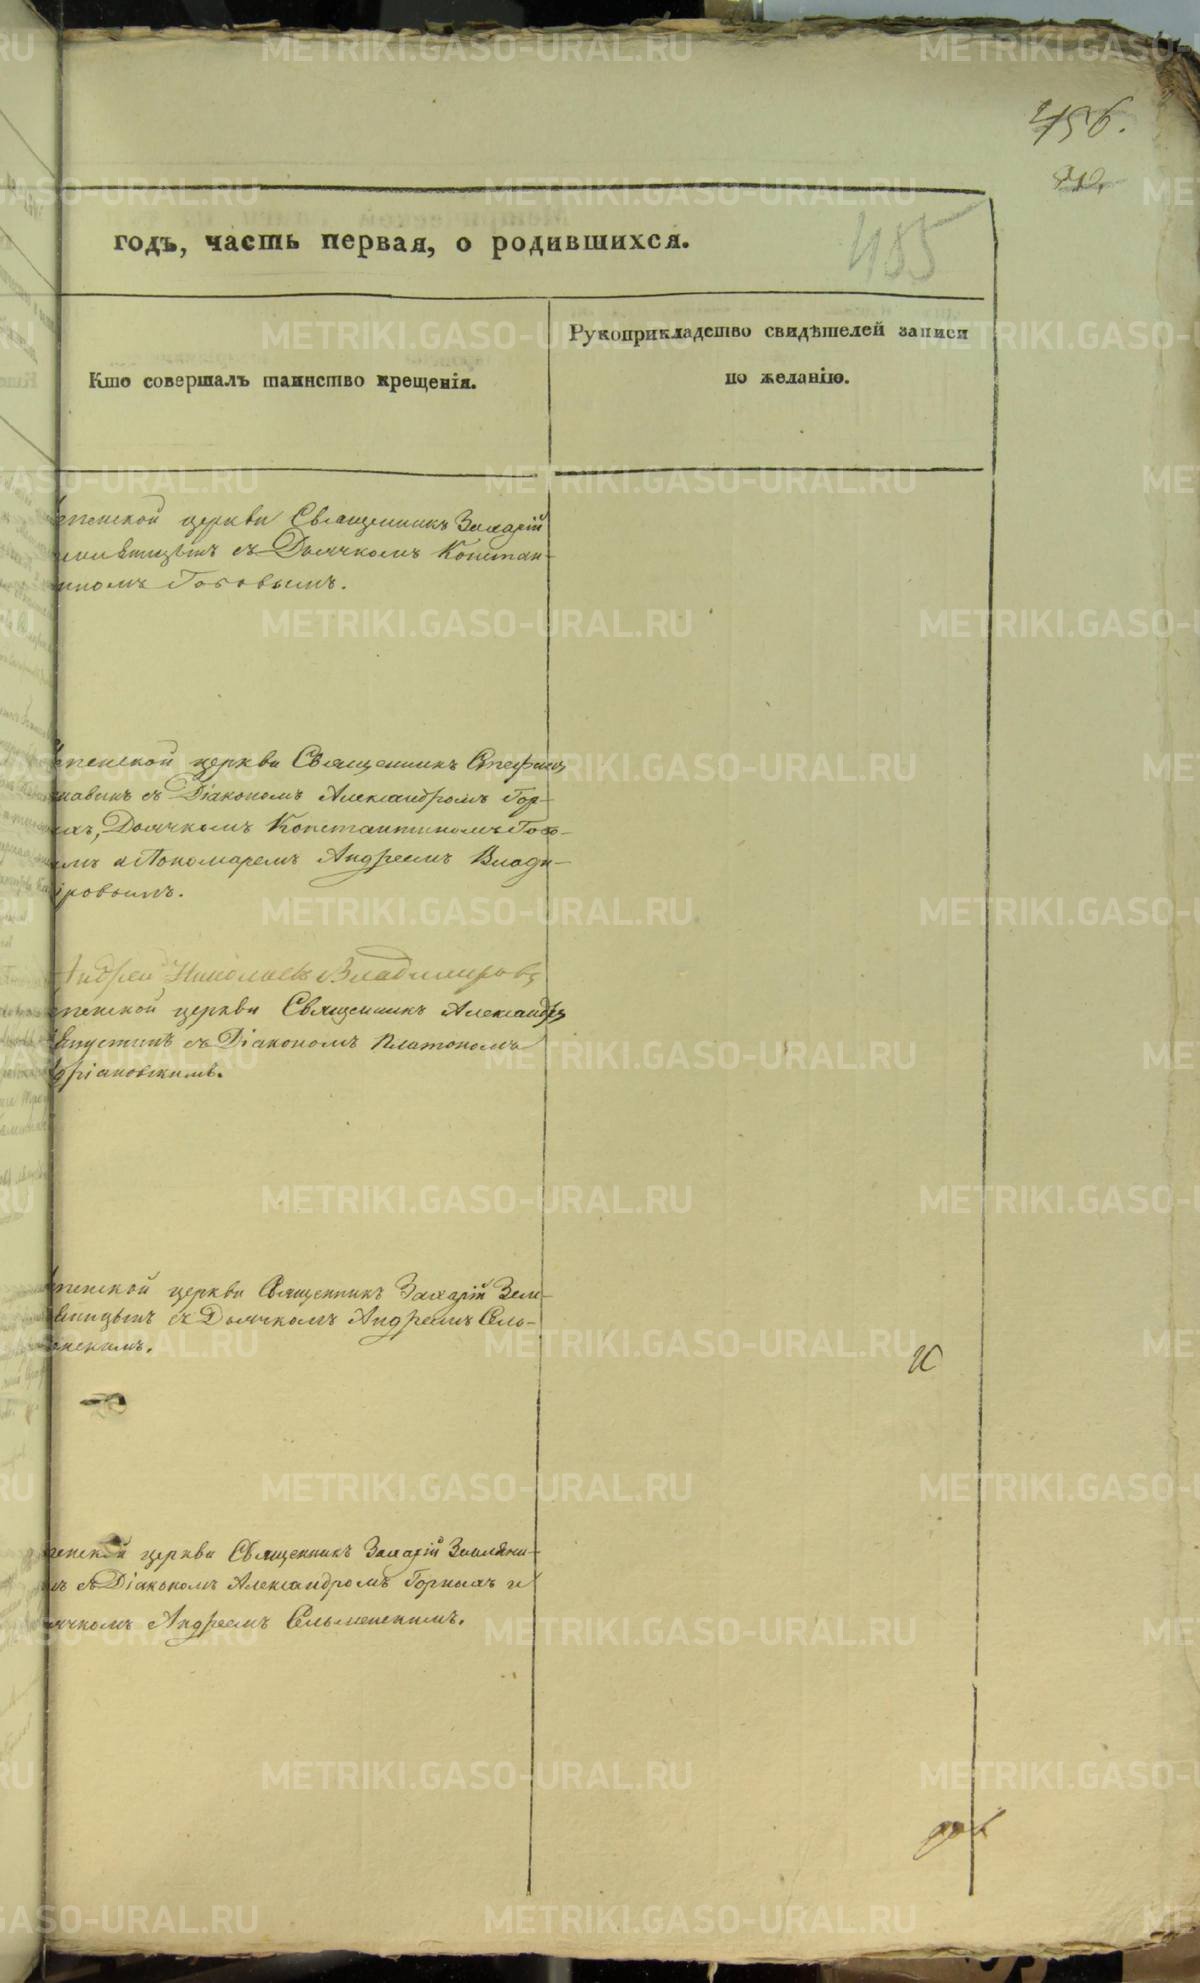 456.
годъ, часть первая, о родившихся.
485
Кто совершалъ таинство крещенія.
Рукоприкладство свидѣтелей записи
по желанію.
пенской церкви Священникъ Захарій
съ Дьячкомъ Констан-
иномъ Говымъ.
пенской церкви Священникъ Стефанъ
съ Діакономъ Александромъ Гор-
ыхъ, Дьячкомъ Константиномъ
мъ и Пономаремъ Андреемъ Влади-
ировымъ.
Андрей Николаевъ Владимировъ
пенской церкви Священникъ Александръ
съ Діакономъ Платономъ
дріановскимъ.
пенской церкви Священникъ Захарій Земля-
ницынъ съ Дьячкомъ Андреемъ Сель-
менскимъ.
И
пенской церкви Священникъ Захарій Земляни-
нъ съ Діакономъ Александромъ Горныхъ и
ячкомъ Андреемъ Сельменскимъ.
METRIKI.GASO-URAL.RU